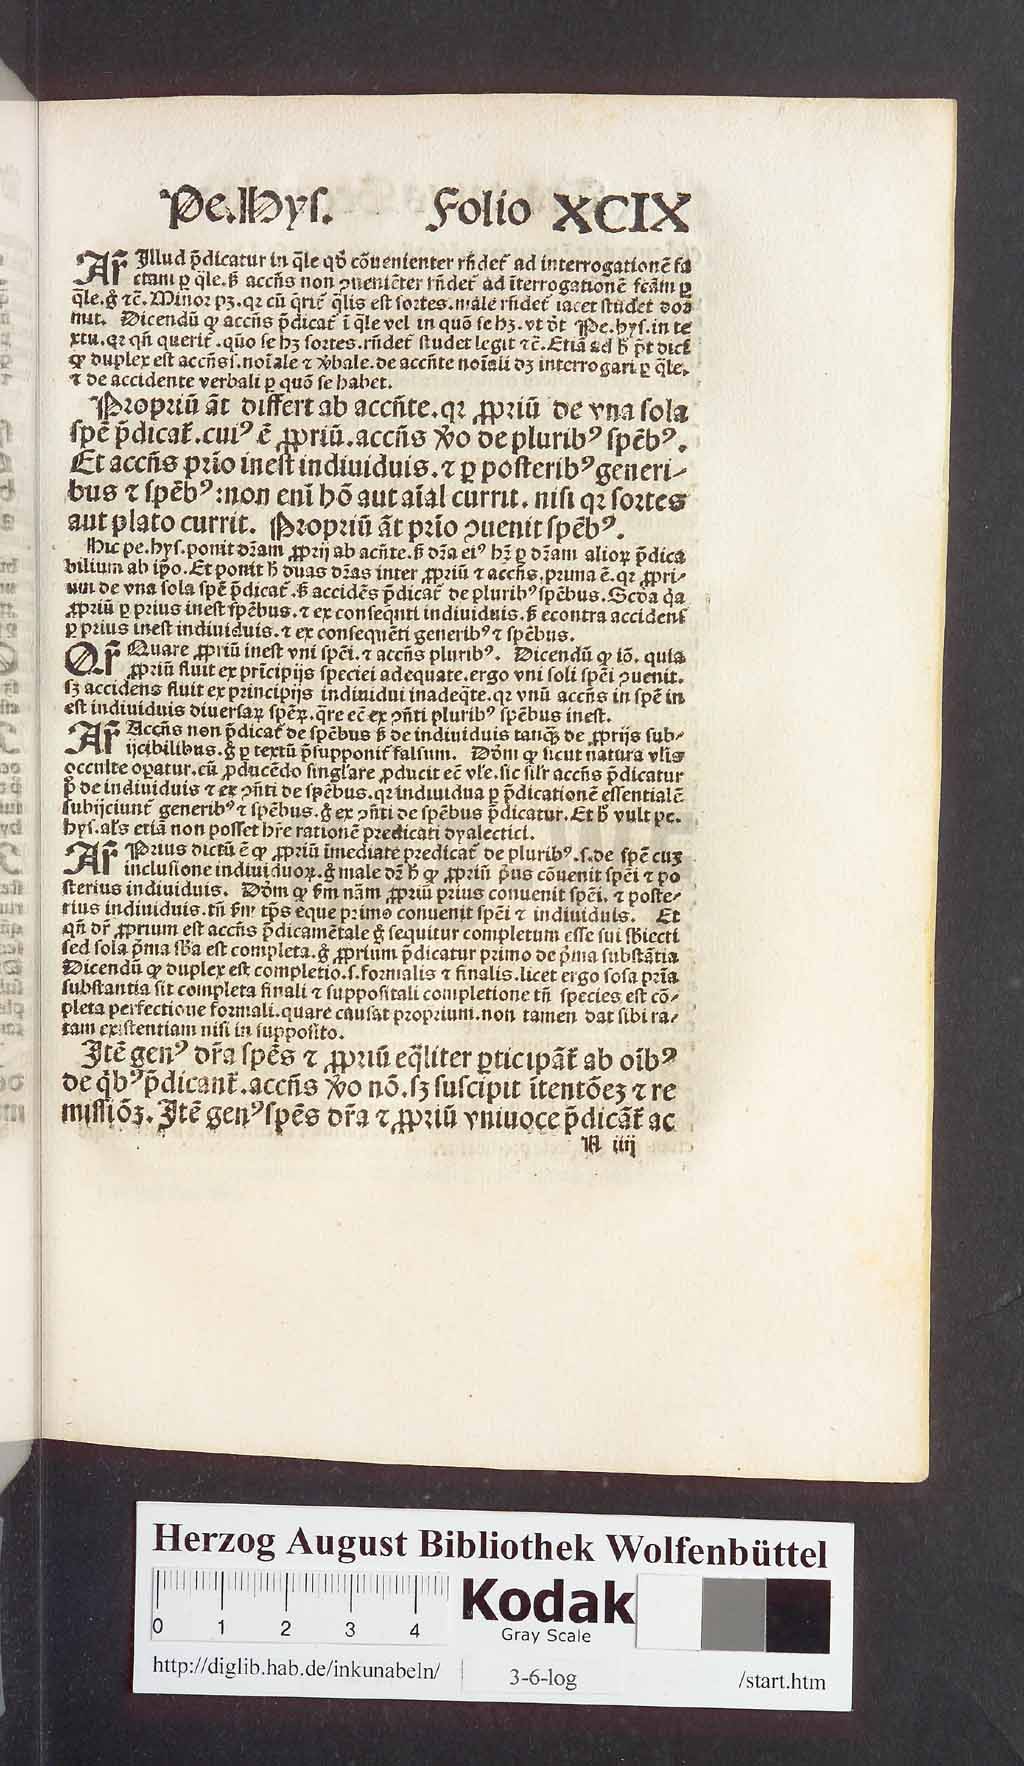 Pe.Hys. Folio XCIX
Arr̃ Illud p̃dicatur in q̃le qđ cõuenienter rñdet̃ ad interrogationẽ fa
ctam ꝑ q̃le. ß accñs non ꝯueniẽter rñdet̃ ad ĩterrogationẽ fcãm ꝑ
q̃le. g̊ ⁊c̃. Minor pꝫ. qꝛ cũ q̃rit̃ q̃lis est sortes. male rñdet̃ iacet studet doꝛ
mit. Dicendũ ꝙ accñs p̃dicat̃ ĩ q̃le vel in quõ se hꝫ. vt dt̃ Pe. hys. in te
xtu. qꝛ qñ querit̃. quõ se hꝫ sortes. rñdet̃ studet legit ⁊c̃. Etiã ad h̃ p̃t dici
ꝙ duplex est accñs s. noĩale ⁊ v̾bale. de accñte noĩali dꝫ interrogari ꝑ q̃le.
⁊ de accidente verbali ꝑ quõ se habet.
Propriũ ãt differt ab accñte. qꝛ ꝓpriũ de vna sola
spẽ p̃dicat̃. cuiꝰ ẽ ꝓpriũ. accñs v̾o de pluribꝰ spẽbꝰ.
Et accñs prĩo inest indiuiduis. ⁊ ꝑ posteribꝰ generi-
bus ⁊ spẽbꝰ: non enĩ hõ aut aĩal currit. nisi qꝛ sortes
aut plato currit. Propriũ ãt prĩo ꝯuenit spẽbꝰ.
Hic pe. hys. ponit dr̃am ꝓprij ab acñte. ß dr̃a eiꝰ hr̃ ꝑ dr̃am alioꝝ p̃dica
bilium ab ip̃o. Et ponit h̃ duas dr̃as inter ꝓpriũ ⁊ accñs. prima ẽ. qꝛ ꝓpri-
um de vna sola spẽ p̃dicat̃. ß accidẽs p̃dicat̃ de pluribꝰ spẽbus. Scđa q̃a
ꝓpriũ ꝑ prius inest spẽbus. ⁊ ex conseq̃nti indiuiduis. ß econtra accidens
ꝑ prius inest indiuiduis. ⁊ ex consequẽti generibꝰ ⁊ spẽbus.
Qr̃ Quare ꝓpriũ inest vni spẽi. ⁊ accñs pluribꝰ. Dicendũ ꝙ iõ. quia
ꝓpriũ fluit ex prĩcipijs speciei adequate. ergo vni soli spẽi ꝯuenit.
sꝫ accidens fluit ex principijs indiuidui inadeq̃te. qꝛ vnũ accñs in spẽ in
est indiuiduis diuersaꝝ spẽꝝ. q̃re ec̃ ex ꝯñti pluribꝰ spẽbus inest.
Arr̃ Accñs non p̃dicat̃ de spẽbus ß de indiuiduis tanq̃ꝫ de ꝓprijs sub-
ijcibilibus. g̊ ꝑ textũ p̃supponit̃ falsum. Dõm ꝙ sicut natura vlis
occulte oꝑatur. cũ ꝓducẽdo singl̃are ꝓducit ec̃ vl̃e. sic sil̃r accñs p̃dicatur
p̃ de indiuiduis ⁊ ex ꝯñti de spẽbus. qꝛ indiuidua ꝑ p̃dicationẽ essentialẽ
subijciunt̃ generibꝰ ⁊ spẽbus. g̊ ex ꝯñti de spẽbus p̃dicatur. Et h̃ vult pe.
hys. al̃s etiã non posset hr̃e rationẽ predicati dyalectici.
Arr̃ Prius dictũ ẽ ꝙ ꝓpriũ ĩmediate predicat̃ de pluribꝰ. s. de spẽ cuꝫ
inclusione indiuiduoꝝ. g̊ male dr̃ h̃ ꝙ ꝓpriũ p̃us cõuenit spẽi ⁊ po
sterius indiuiduis. Dõm ꝙ ßm nãm ꝓpriũ prius conuenit spẽi. ⁊ poste-
rius indiuiduis. tñ ßm tp̃s eque primo conuenit spẽi ⁊ indiuiduis. Et
qñ dr̃ ꝓprium est accñs p̃dicamẽtale g̊ sequitur completum esse sui sb̃iecti
sed sola p̃ma sb̃a est completa. g̊ ꝓprium p̃dicatur primo de p̃ma substãtia
Dicendũ ꝙ duplex est completio. s. formalis ⁊ finalis. licet ergo sola prĩa
substantia sit completa finali ⁊ suppositali completione tñ species est cõ-
pleta perfectione formali. quare causat proprium. non tamen dat sibi ra-
tam existentiam nisi in supposito.
Itẽ genꝰ dr̃a spẽs ⁊ ꝓpriũ eq̃liter ꝑticipãt̃ ab oĩbꝰ
de q̃bꝰ p̃dicant̃. accñs v̾o nõ. sꝫ suscipit ĩtentõeꝫ ⁊ re
missiõꝫ. Itẽ genꝰ spẽs dr̃a ⁊ ꝓpriũ vniuoce p̃dicãt̃ ac
N iiij
Herzog August Bibliothek Wolfenbüttel
0 1 2 3 4
Kodak
Gray Scale
http://diglib.hab.de/inkunabeln/ 3-6-log /start.htm